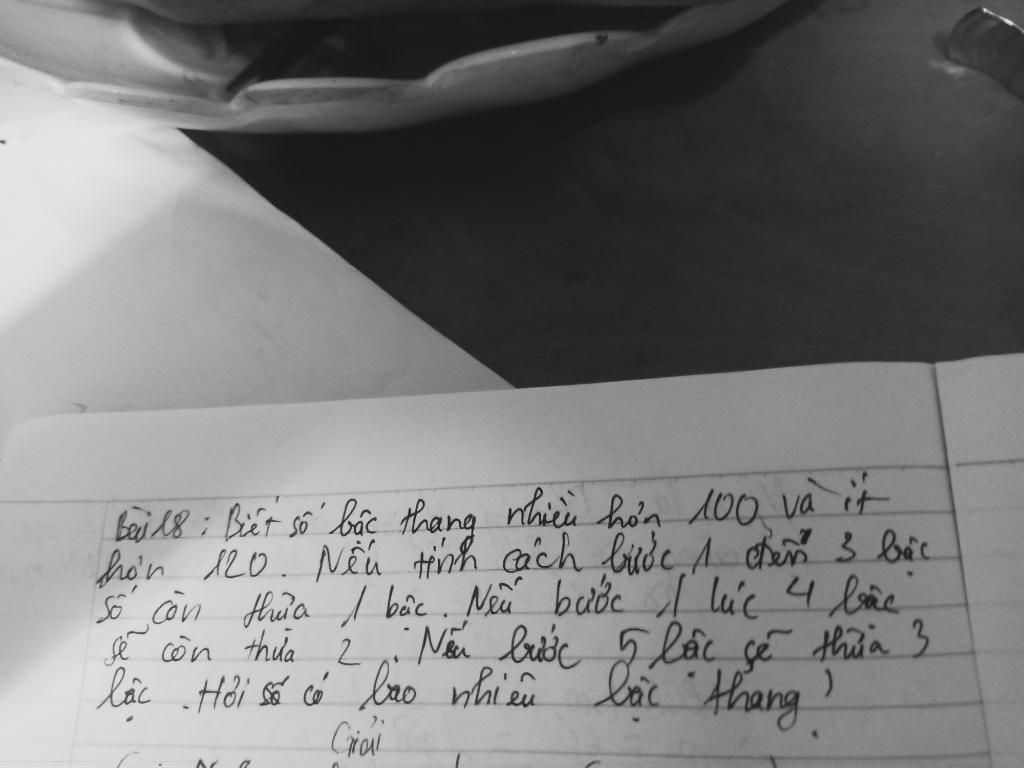 Bài 18: Biết số bậc thang nhiều hơn 100 và ít
hơn 120. Nếu tính cách bước 1 đến 3 bậc
số còn thừa 1 bậc. Nếu bước 1 lúc 4 bậc
sẽ còn thừa 2. Nếu bước 5 bậc sẽ thừa 3
bậc. Hỏi số có bao nhiêu bậc thang?
Giải